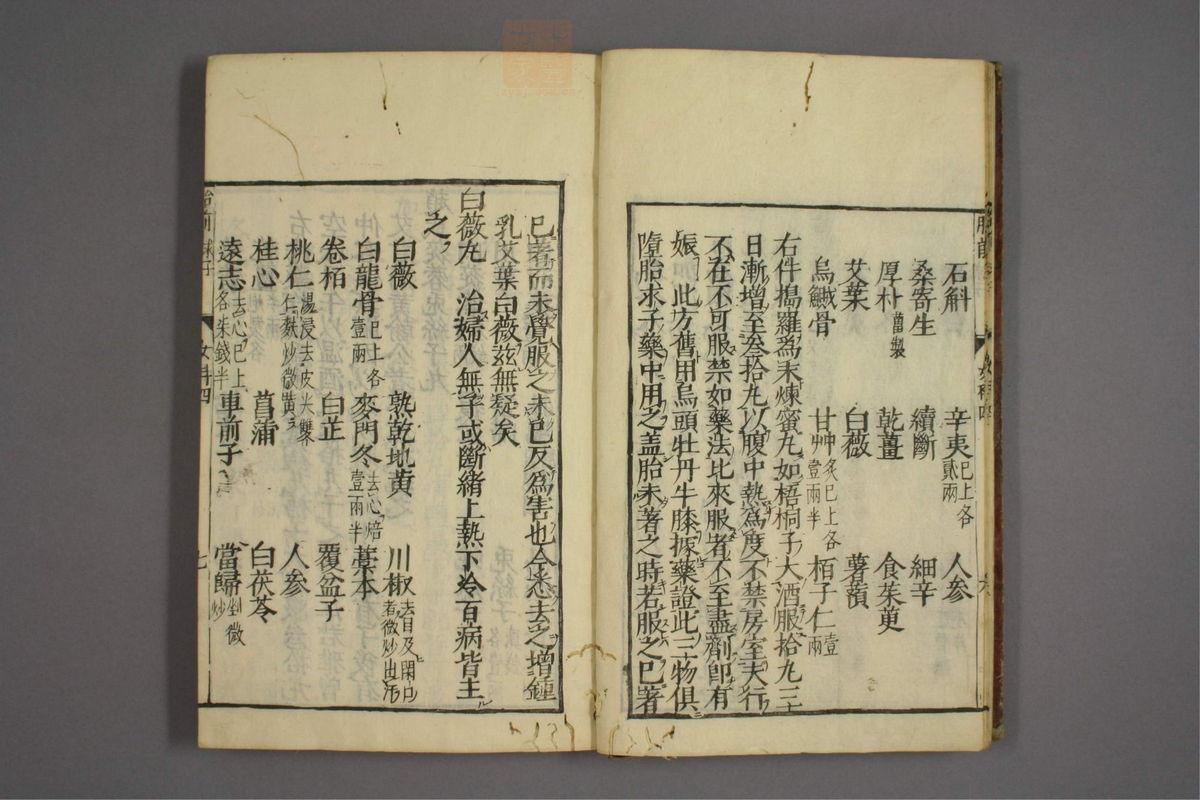 石斛 辛夷已上各貳兩 人參
桑寄生 續斷 細辛
厚朴薑製 乾薑 食茱萸
艾葉 白薇 薯蕷
烏鰂骨 甘艸炙已上各壹兩半 栢子仁壹兩
右件搗羅爲末煉蜜丸如梧桐子大酒服拾丸三
日漸增至叁拾丸以腹中熱爲度不禁房室夫行
不在不可服禁如藥法比來服者不至盡劑卽有
娠 此方舊用烏頭牡丹牛膝據藥證此三物俱
墮胎求子藥中用之盖胎未著之時若服之巳著
巳著而未覺服之未巳反爲害也今悉去之增鍾
乳艾葉白薇茲無疑矣
白薇丸 治婦人無子或斷緒上熱下冷百病皆主
之
白薇 熟乾地黃 川椒去目及閉口者微炒出汗
白龍骨已上各壹兩 麥門冬去心焙壹兩半 藁本
卷栢 白芷 覆盆子
桃仁湯浸去皮尖雙仁麩炒微黃 人參
桂心 菖蒲 白茯苓
遠志去心已上各柒錢半 車前子 當歸剉微炒
女科四
七